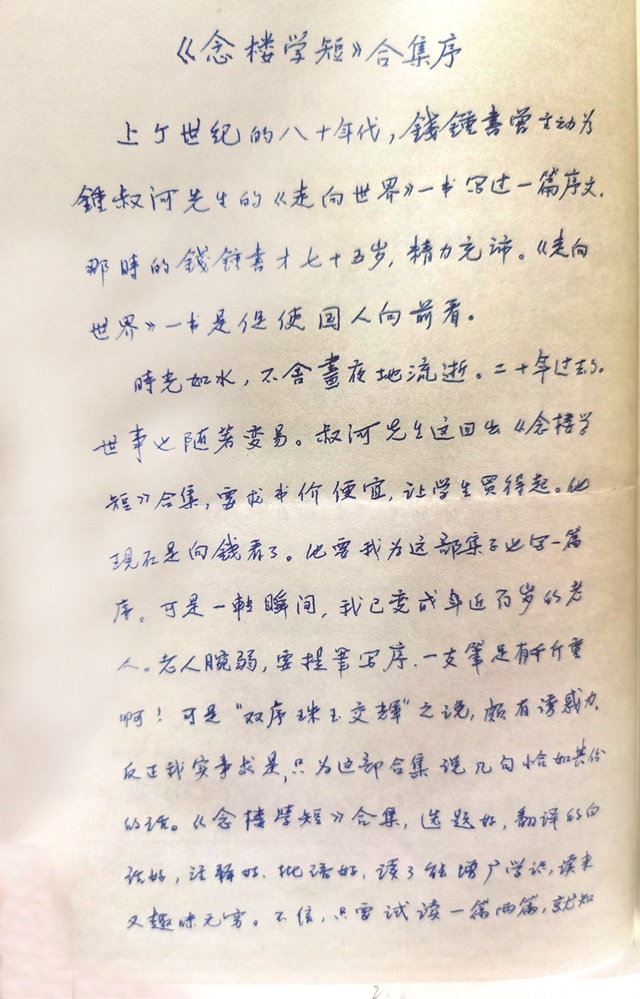 《念楼学短》合集序
上个世纪的八十年代，錢鍾書曾主动为
鍾叔河先生的《走向世界》一书写过一篇序文.
那時的錢鍾書才七十五岁，精力充沛。《走向
世界》一书是促使国人向前看。
時光如水，不舍晝夜地流逝。二十年过去了.
世事也随着变易。叔河先生这回出《念楼学
短》合集，要求书价便宜，让学生买得起。他
現在是向錢看了。他要我为这部集子也写一篇
序。可是一転瞬间，我已变成年近百岁的老
人。老人腕弱，要提筆写序.一支筆是有千斤重
啊！可是“双序珠玉交輝”之说，頗有诱惑力.
反正我实事求是，只为这部合集说几句恰如其份
的话。《念楼學短》合集，选题好，翻译的白
话好，注释好.批语好，读了能增广学识，读来
又趣味无穷。不信，只要试读一篇两篇，就知
2